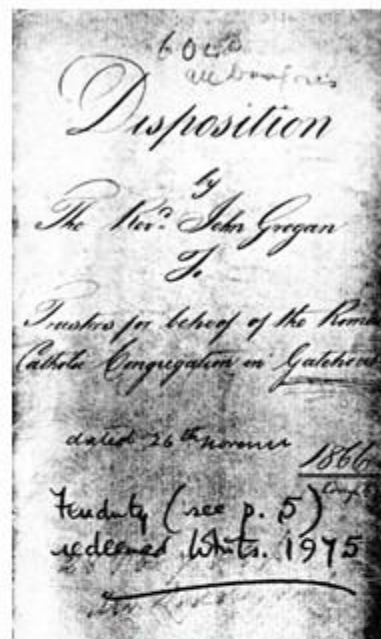 Disposition
by
The Revd. John Grogan
To
Trustees for behoof of the Roman
Catholic Congregation in Gatehouse
dated 26th
1866
Feuduty (see p. 5)
redeemed Whits. 1975